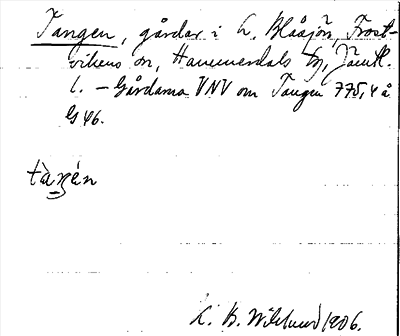 Tangen, gårdar i L. Blåsjön, Frost-
vikens sn, Hammerdals tg, Jämtl.
l. – Gårdarna VNV om Tangen 775,4 å
G 46.
K. B. Wiklund 1906.